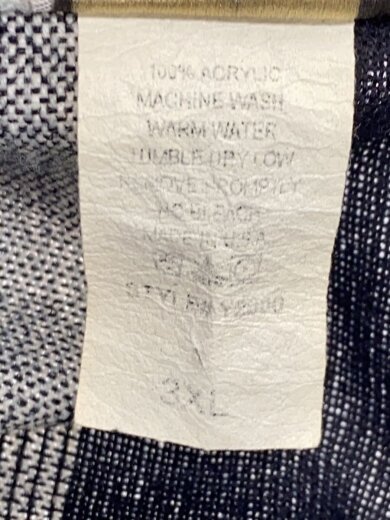 100% ACRYLIC
MACHINE WASH
WARM WATER
TUMBLE DRY LOW
REMOVE PROMPTLY
NO BLEACH
MADE IN U.S.A.
STYLE#
3XL